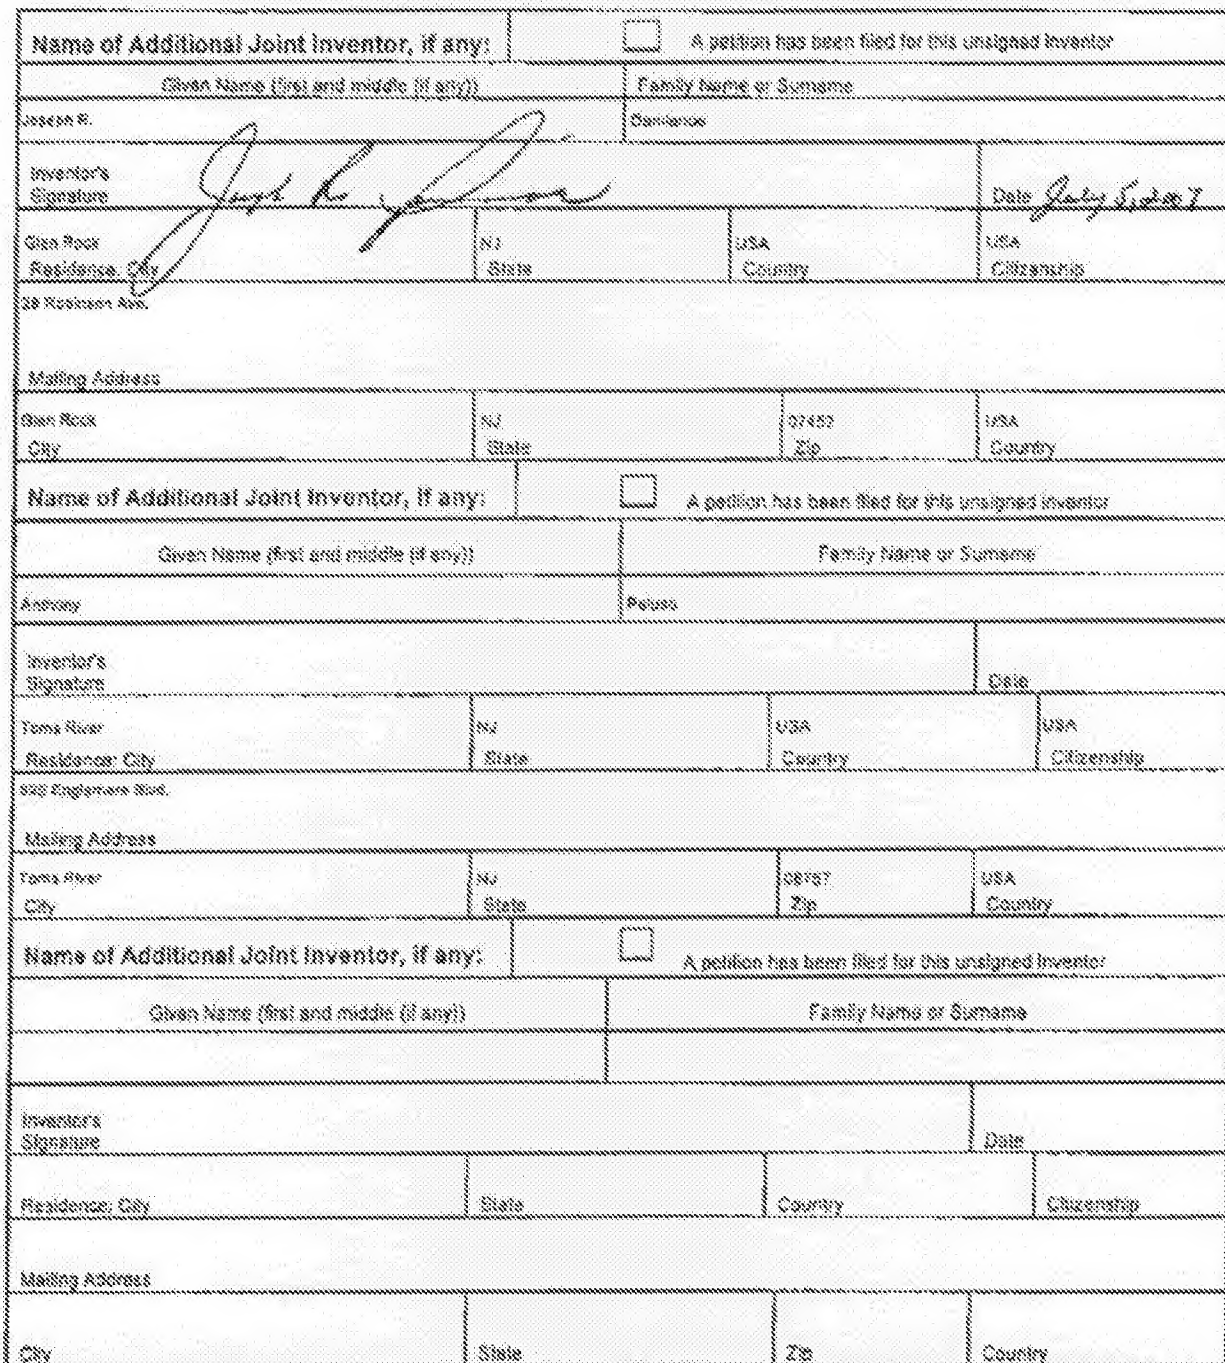 Name of Additional Joint Inventor, if any: A petition has been filed for this unsigned inventor
Given Name (first and middle (if any)) Family Name or Surname
Joseph R.
Inventor's
Signature Joseph R. Date July 5, 2007
Glen Rock NJ USA USA
Residence: City State Country Citizenship
28 Robinson Ave.
Mailing Address
Glen Rock NJ 07452 USA
City State Zip Country
Name of Additional Joint Inventor, if any: A petition has been filed for this unsigned inventor
Given Name (first and middle (if any)) Family Name or Surname
Anthony Peluso
Inventor's
Signature Date
Toms River NJ USA USA
Residence: City State Country Citizenship
Blvd.
Mailing Address
Toms River NJ 08757 USA
City State Zip Country
Name of Additional Joint Inventor, if any: A petition has been filed for this unsigned inventor
Given Name (first and middle (if any)) Family Name or Surname
Inventor's
Signature Date
Residence: City State Country Citizenship
Mailing Address
City State Zip Country